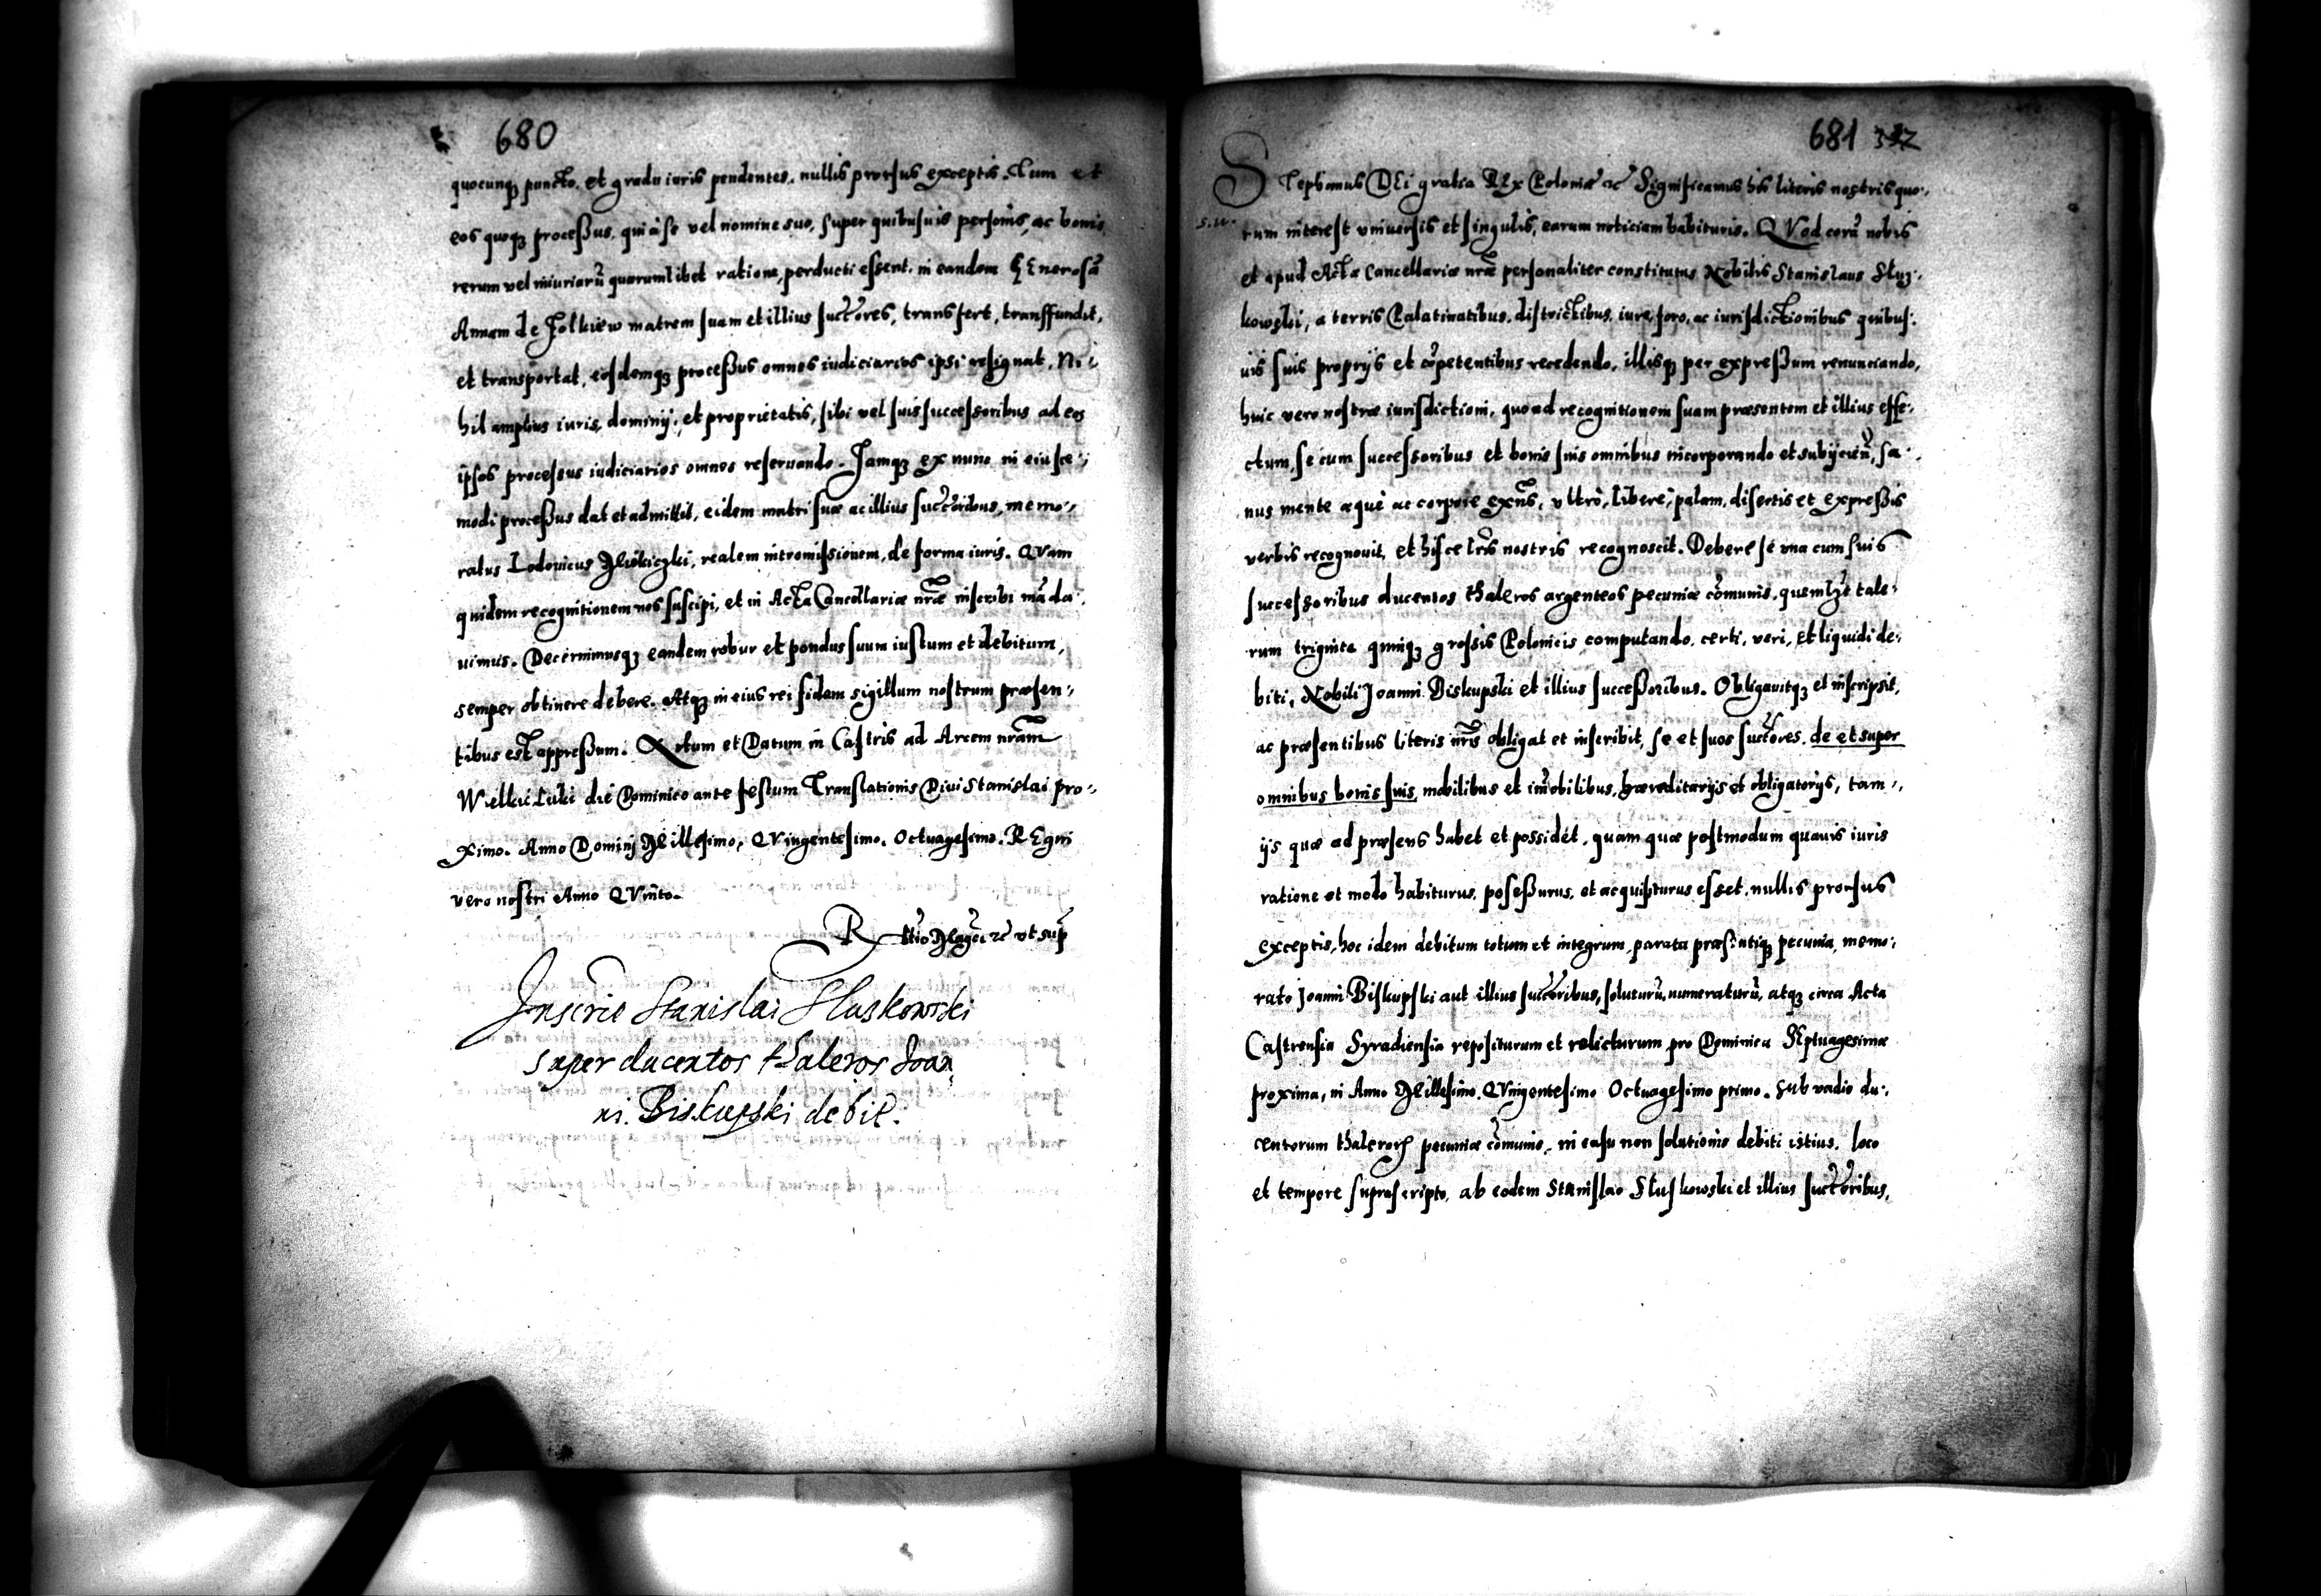 680
quocunq₃ puncto, et gradu iuris pendentes, nullis prorsus exceptis. Tum et
eos quoq₃ processus, qui à se vel nomine suo, super quibusuis personis, ac bonis
rerum vel iniuriarũ quarumlibet ratione, perducti essent, in eandem GEnerosã
Annam de Zolkiew matrem suam et illius succores, transfert, transffundit,
et transportat, eosdemq₃ processus omnes iudiciarios ipsi resignat. Ni-
hil amplius iuris, dominij, et proprietatis, sibi vel suis successoribus ad eos
ipsos processus iudiciarios omnes reseruando. Iamq₃ ex nunc in eiusce-
modi processus dat et admittit, eidem matri suæ ac illius succoribus, memo-
ratus Lodouicus, realem intromissionem, de forma iuris. QVam
quidem recognitionem nos suscipi, et in Acta Cancellariæ nræ inscribi mãda-
uimus. Decernimusq₃ eandem robur et pondus suum iustum et debitum,
semper obtinere debere. Atq₃ in eius rei fidem sigillum nostrum præsen-
tibus est appressum. Actum et Datum in Castris ad Arcem nram
Wielkieluki die Dominico ante festum Translationis Diui Stanislai pro-
ximo. Anno Dominj Millesimo, QVingentesimo. Octuagesimo. REgni
vero nostri Anno QVinto.
R ut sup
Inscrie Stanislai Sluskowski
super ducentos thaleros Joan
ni. Biskupski debit.
681
Stephanus DEi gratia REx Poloniæ ac Significamus his literis nostris quo-
rum interest vniuersis et singulis, earum noticiam habituris. QVod corã nobis
et apud Acta Cancellariæ nræ personaliter constitutus Nobilis Stanislaus Sluz-
kowski, a terris Palatinatibus, districtibus, iure, foro, ac iurisdictionibus quibus-
uis suis proprijs et cõpetentibus recedendo, illisq₃ per expressum renunciando,
huic vero nostræ iurisdictioni, quoad recognitionem suam præsentem et illius effe-
ctum, se cum successoribus et bonis suis omnibus incorporando et subijcien, sa-
nus mente æquè ac corpore exns, vltrò, libere, palam, disertis et expressis
verbis recognouit, et hisce lris nostris recognoscit. Debere se vna cum suis
successoribus ducentos thaleros argenteos pecuniæ cõmunis, quemlzt tale-
rum triginta quinq₃ grossis Polonicis computando, certi, veri, et liquidi de-
biti, Nobili Joanni Biskupski et illius successoribus. Obligauitq₃ et inscripsit,
ac præsentibus literis nris obligat et inscribit, se et suos succores, de et super
omnibus bonis suis, mobilibus et imobilibus, hæreditarijs et obligatorijs, tam
ijs quæ ad præsens habet et possidet, quam quæ postmodum quauis iuris
ratione et modo habiturus, possessurus, et acquisiturus esset, nullis prorsus
exceptis, hoc idem debitum totum et integrum, parata præsentiq₃ pecunia, memo-
rato Joanni Biskupski aut illius succoribus, soluturũ, numeraturũ, atq₃ circa Acta
Castrensia Syradiensia repositurum et relicturum pro Dominica SEptuagesimæ
proxima, in Anno Millesimo. QVingentesimo Octuagesimo primo. Sub vadio du-
centorum thalerorum pecuniæ cõmunis, in casu non solutionis debiti istius, loco
et tempore suprascripto, ab eodem Stanislao Sluskowski et illius succoribus,